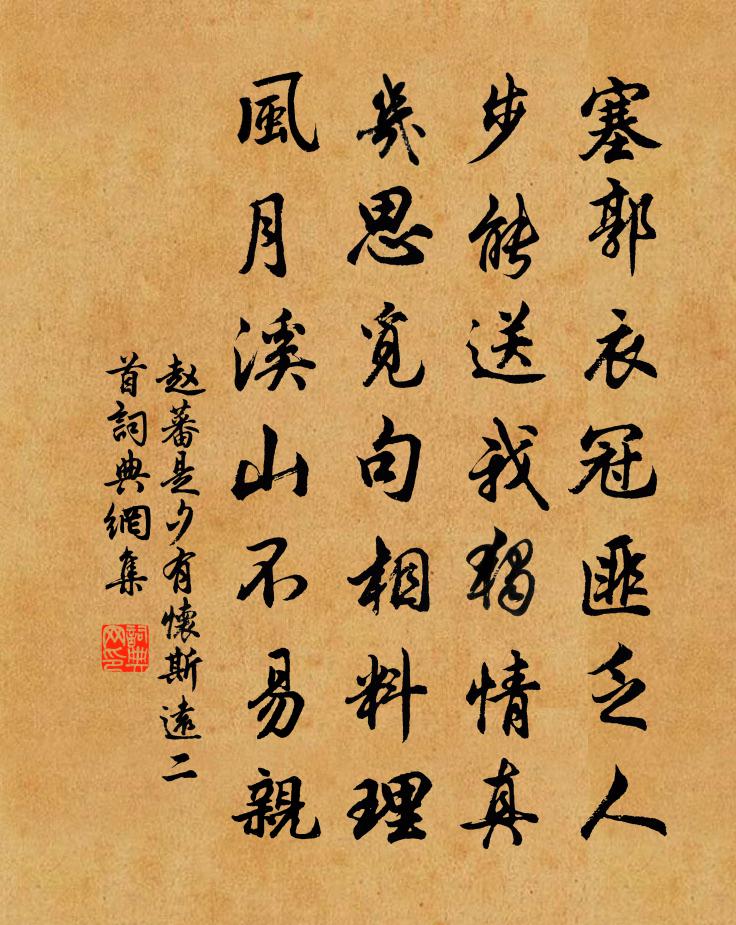 塞郭衣冠匪乏人
步能送我獨情真
幾思覓句相料理
風月溪山不易親
赵蕃是夕有懷斯遠二
首詞典網集
詞典
网印